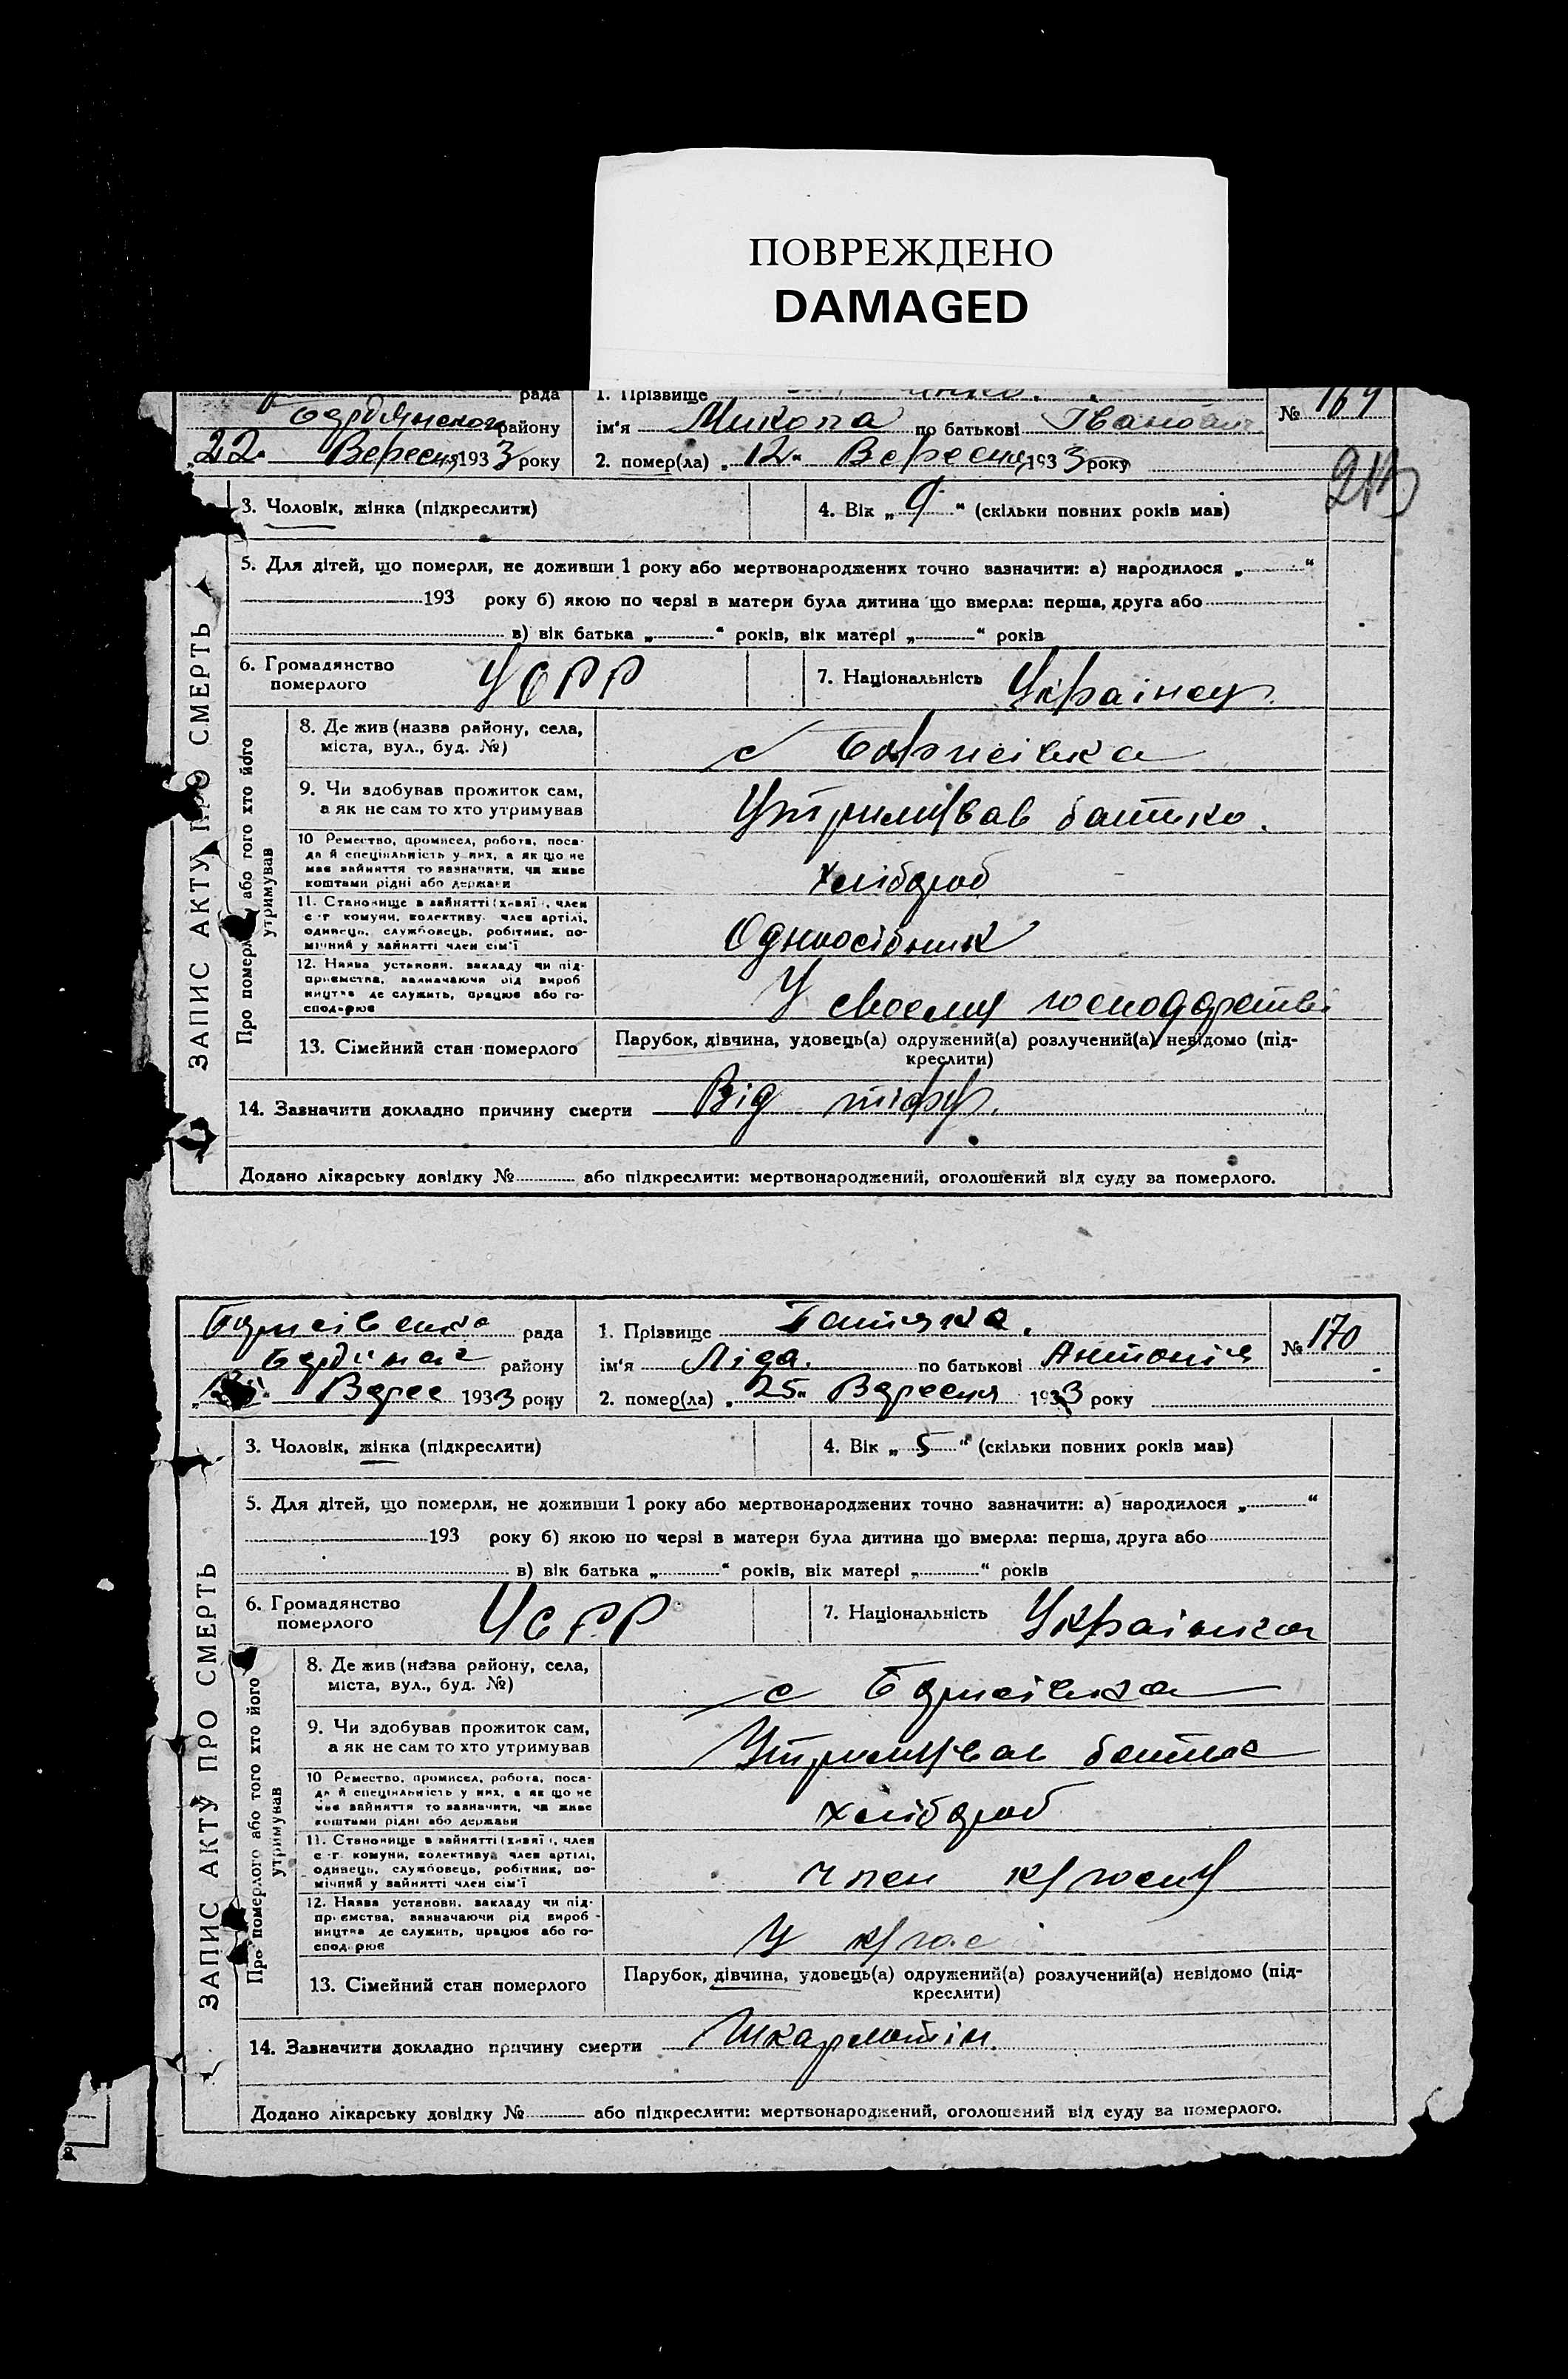 ПОВРЕЖДЕНО
DAMAGED
рада
1. Прізвище
№ 169
району
ім'я Микола по батькові Іванович
22 Вересня 1933 року
2. помер(ла) „12" Вересня 1933 року
3. Чоловік, жінка (підкреслити)
4. Вік „9" (скільки повних років мав)
5. Для дітей, що померли, не доживши 1 року або мертвонароджених точно зазначити: а) народилося „ "
193 року б) якою по черзі в матери була дитина що вмерла: перша, друга або
в) вік батька „ " років, вік матері „ " років
6. Громадянство
померлого
УСРР
7. Національність Українец
8. Де жив (назва району, села,
міста, вул., буд. №)
с Борисівка
9. Чи здобував прожиток сам,
а як не сам то хто утримував
Утримував батько.
10 Ремество, промисел, робота, поса-
да й спеціяльність у них, а як що не
має зайняття то зазначити, чи живе
коштами рідні або держави
хлібороб
11. Становище в зайнятті (хазяї , член
с -г комуни, колективу член артілі,
одинець, службовець, робітник, по-
мічний у зайнятті член сім'ї
Одноосібник
12. Назва установи, закладу чи під-
приємства, зазначаючи рід вироб
ництва де служить, працює або го-
сподарює
У своєму господарстві
13. Сімейний стан померлого
Парубок, дівчина, удовець(а) одружений(а) розлучений(а) невідомо (під-
креслити)
14. Зазначити докладно причину смерти Від тіфу.
Додано лікарську довідку № або підкреслити: мертвонароджений, оголошений від суду за померлого.
ЗАПИС АКТУ ПРО СМЕРТЬ
Про померл або того хто його
утримував
рада
1. Прізвище
№ 170
району
ім'я Ліда. по батькові
Верес 1933 року
2. помер(ла) „25" Вересня 1933 року
3. Чоловік, жінка (підкреслити)
4. Вік „5" (скільки повних років мав)
5. Для дітей, що померли, не доживши 1 року або мертвонароджених точно зазначити: а) народилося „ "
193 року б) якою по черзі в матери була дитина що вмерла: перша, друга або
в) вік батька „ " років, вік матері „ " років
6. Громадянство
померлого
УСРР
7. Національність Українка
8. Де жив (назва району, села,
міста, вул., буд. №)
с Борисівка
9. Чи здобував прожиток сам,
а як не сам то хто утримував
Утримував батько
10 Ремество, промисел, робота, поса-
да й спеціяльність у них, а як що не
має зайняття то зазначити, чи живе
коштами рідні або держави
хлібороб
11. Становище в зайнятті (хазяї , член
с -г комуни, колективу член артілі,
одинець, службовець, робітник, по-
мічний у зайнятті член сім'ї
член
12. Назва установи, закладу чи під-
приємства, зазначаючи рід вироб-
ництва де служить, працює або го-
сподарює
У
13. Сімейний стан померлого
Парубок, дівчина, удовець(а) одружений(а) розлучений(а) невідомо (під-
креслити)
14. Зазначити докладно причину смерти
Додано лікарську довідку № або підкреслити: мертвонароджений, оголошений від суду за померлого.
ЗАПИС АКТУ ПРО СМЕРТЬ
Про померлого або того хто його
утримував